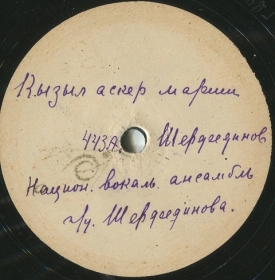 Кызыл аскер марши
443А. Шердгединов
Национ. вокаль. ансамбль
п/у. Шердгединова.